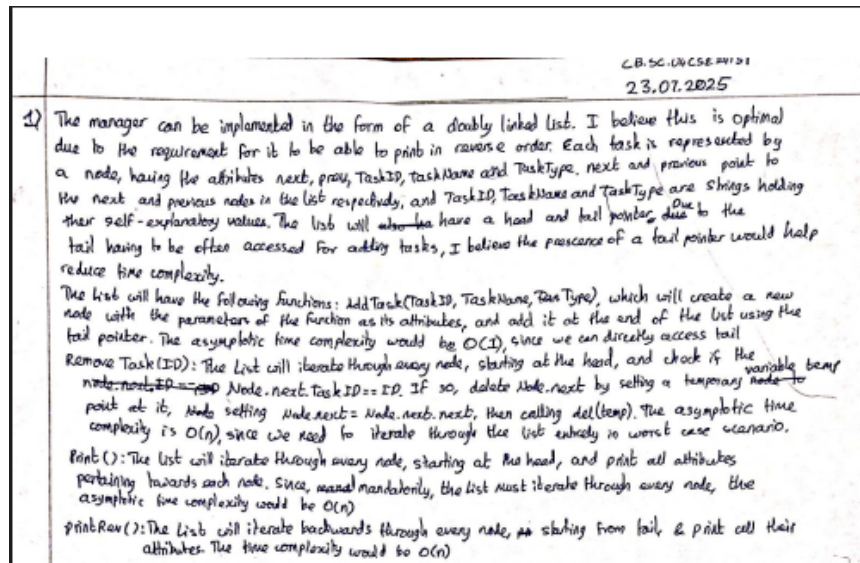 CB.SC.U4CSE24151
23.07.2025
1) The manager can be implemented in the form of a doubly linked list. I believe this is optimal
due to the requirement for it to be able to print in reverse order. Each task is represented by
a node, having the attributes next, prev, TaskID, TaskName and TaskType. next and previous point to
the next and previous nodes in the list respectively, and TaskID, TaskName and TaskType are strings holding
their self-explanatory values. The list will have a head and tail pointer, Due to the
tail having to be often accessed for adding tasks, I believe the prescence of a tail pointer would help
reduce time complexity.
The list will have the following functions: AddTask(TaskID, TaskName, Type), which will create a new
node with the parameters of the function as its attributes, and add it at the end of the list using the
tail pointer. The asymptotic time complexity would be O(1), since we can directly access tail
Remove Task(ID): The list will iterate through every node, starting at the head, and check if the
Node.next.TaskID == ID. If so, delete Node.next by setting a temporary variable temp
point at it, setting Node.next = Node.next.next, then calling del(temp). The asymptotic time
complexity is O(n), since we need to iterate through the list entirely in worst case scenario.
Print(): The list will iterate through every node, starting at the head, and print all attributes
pertaining towards each node. Since, mandatorily, the list must iterate through every node, the
asymptotic time complexity would be O(n)
printRev(): The list will iterate backwards through every node, starting from tail, & print all their
attributes. The time complexity would be O(n)